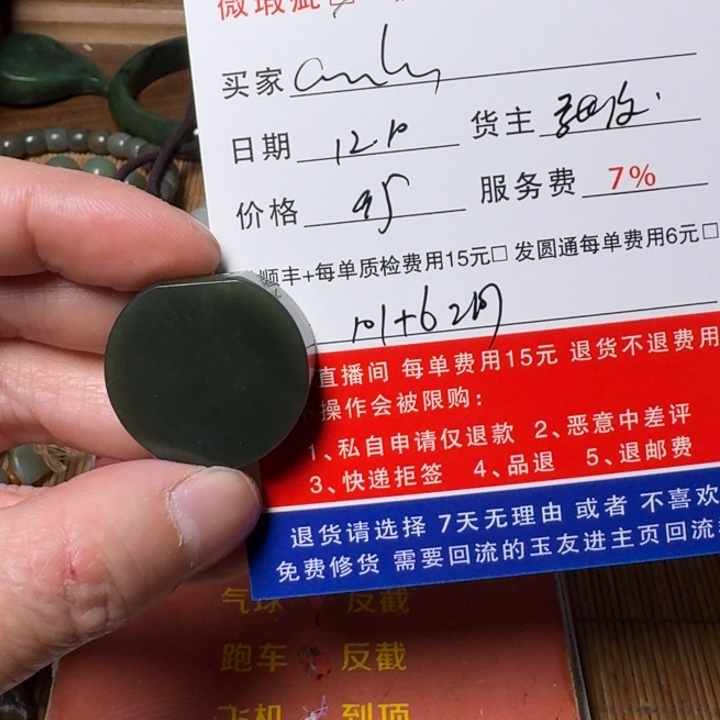 微瑕疵□
买家
日期 12.10 货主
价格 95 服务费 7%
顺丰+每单质检费用15元□ 发圆通每单费用6元□
101+6=107
直播间 每单费用15元 退货不退费用
操作会被限购：
1、私自申请仅退款 2、恶意中差评
3、快递拒签 4、品退 5、退邮费
退货请选择 7天无理由 或者 不喜欢
免费修货 需要回流的玉友进主页回流
气球 反截
跑车 反截
飞机 到顶